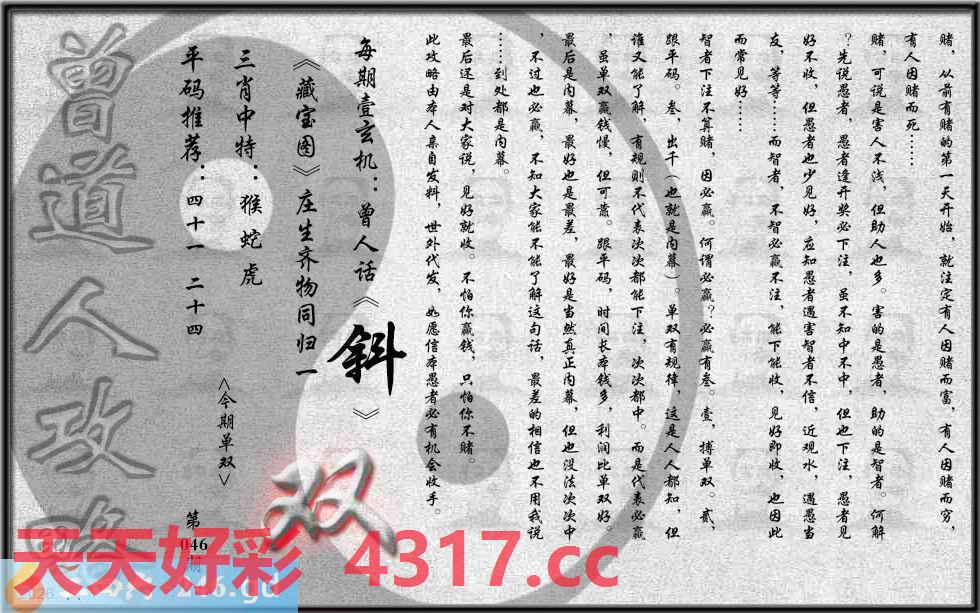 赌，从前有赌的第一天开始，就注定有人因赌而富，有人因赌而穷，
有人因赌而死……
赌，可说是害人不浅，但助人也多。害的是愚者，助的是智者。何解
？先说愚者，愚者逢开奖必下注，虽不知中不中，但也下注，愚者见
好不收，但愚者也少见好，应知愚者遇害智者不信，近观水，遇愚当
友，等等……而智者，不智必赢不注，能下能收，见好即收，也因此
而常见好……
智者下注不算赌，因必赢。何谓必赢？必赢有叁。壹，搏单双。贰，
跟平码。叁，出千（也就是内幕）。单双有规律，这是人人都知，但
谁又能了解，有规则不代表次次都能下注，次次都中。而是代表必赢
，虽单双赢钱慢，但可靠。跟平码，时间长本钱多，利润比单双好。
最后是内幕，最好也是最差，最好是当然真正内幕，但也没法次次中
，不过也必赢，不知大家能不能了解这句话，最差的相信也不用我说
……到处都是内幕。
最后还是对大家说，见好就收。不怕你赢钱，只怕你不赌。
此攻略由本人亲自发料，世外代发，如愿信本愚者必有机会收手。
每期壹玄机：曾人话《斜》
《藏宝图》庄生齐物同归一
三肖中特：猴 蛇 虎
平码推荐：四十一 二十四
<今期单双>
双
第
046
期
曾道人攻略
天天好彩 4317.cc
246.gd